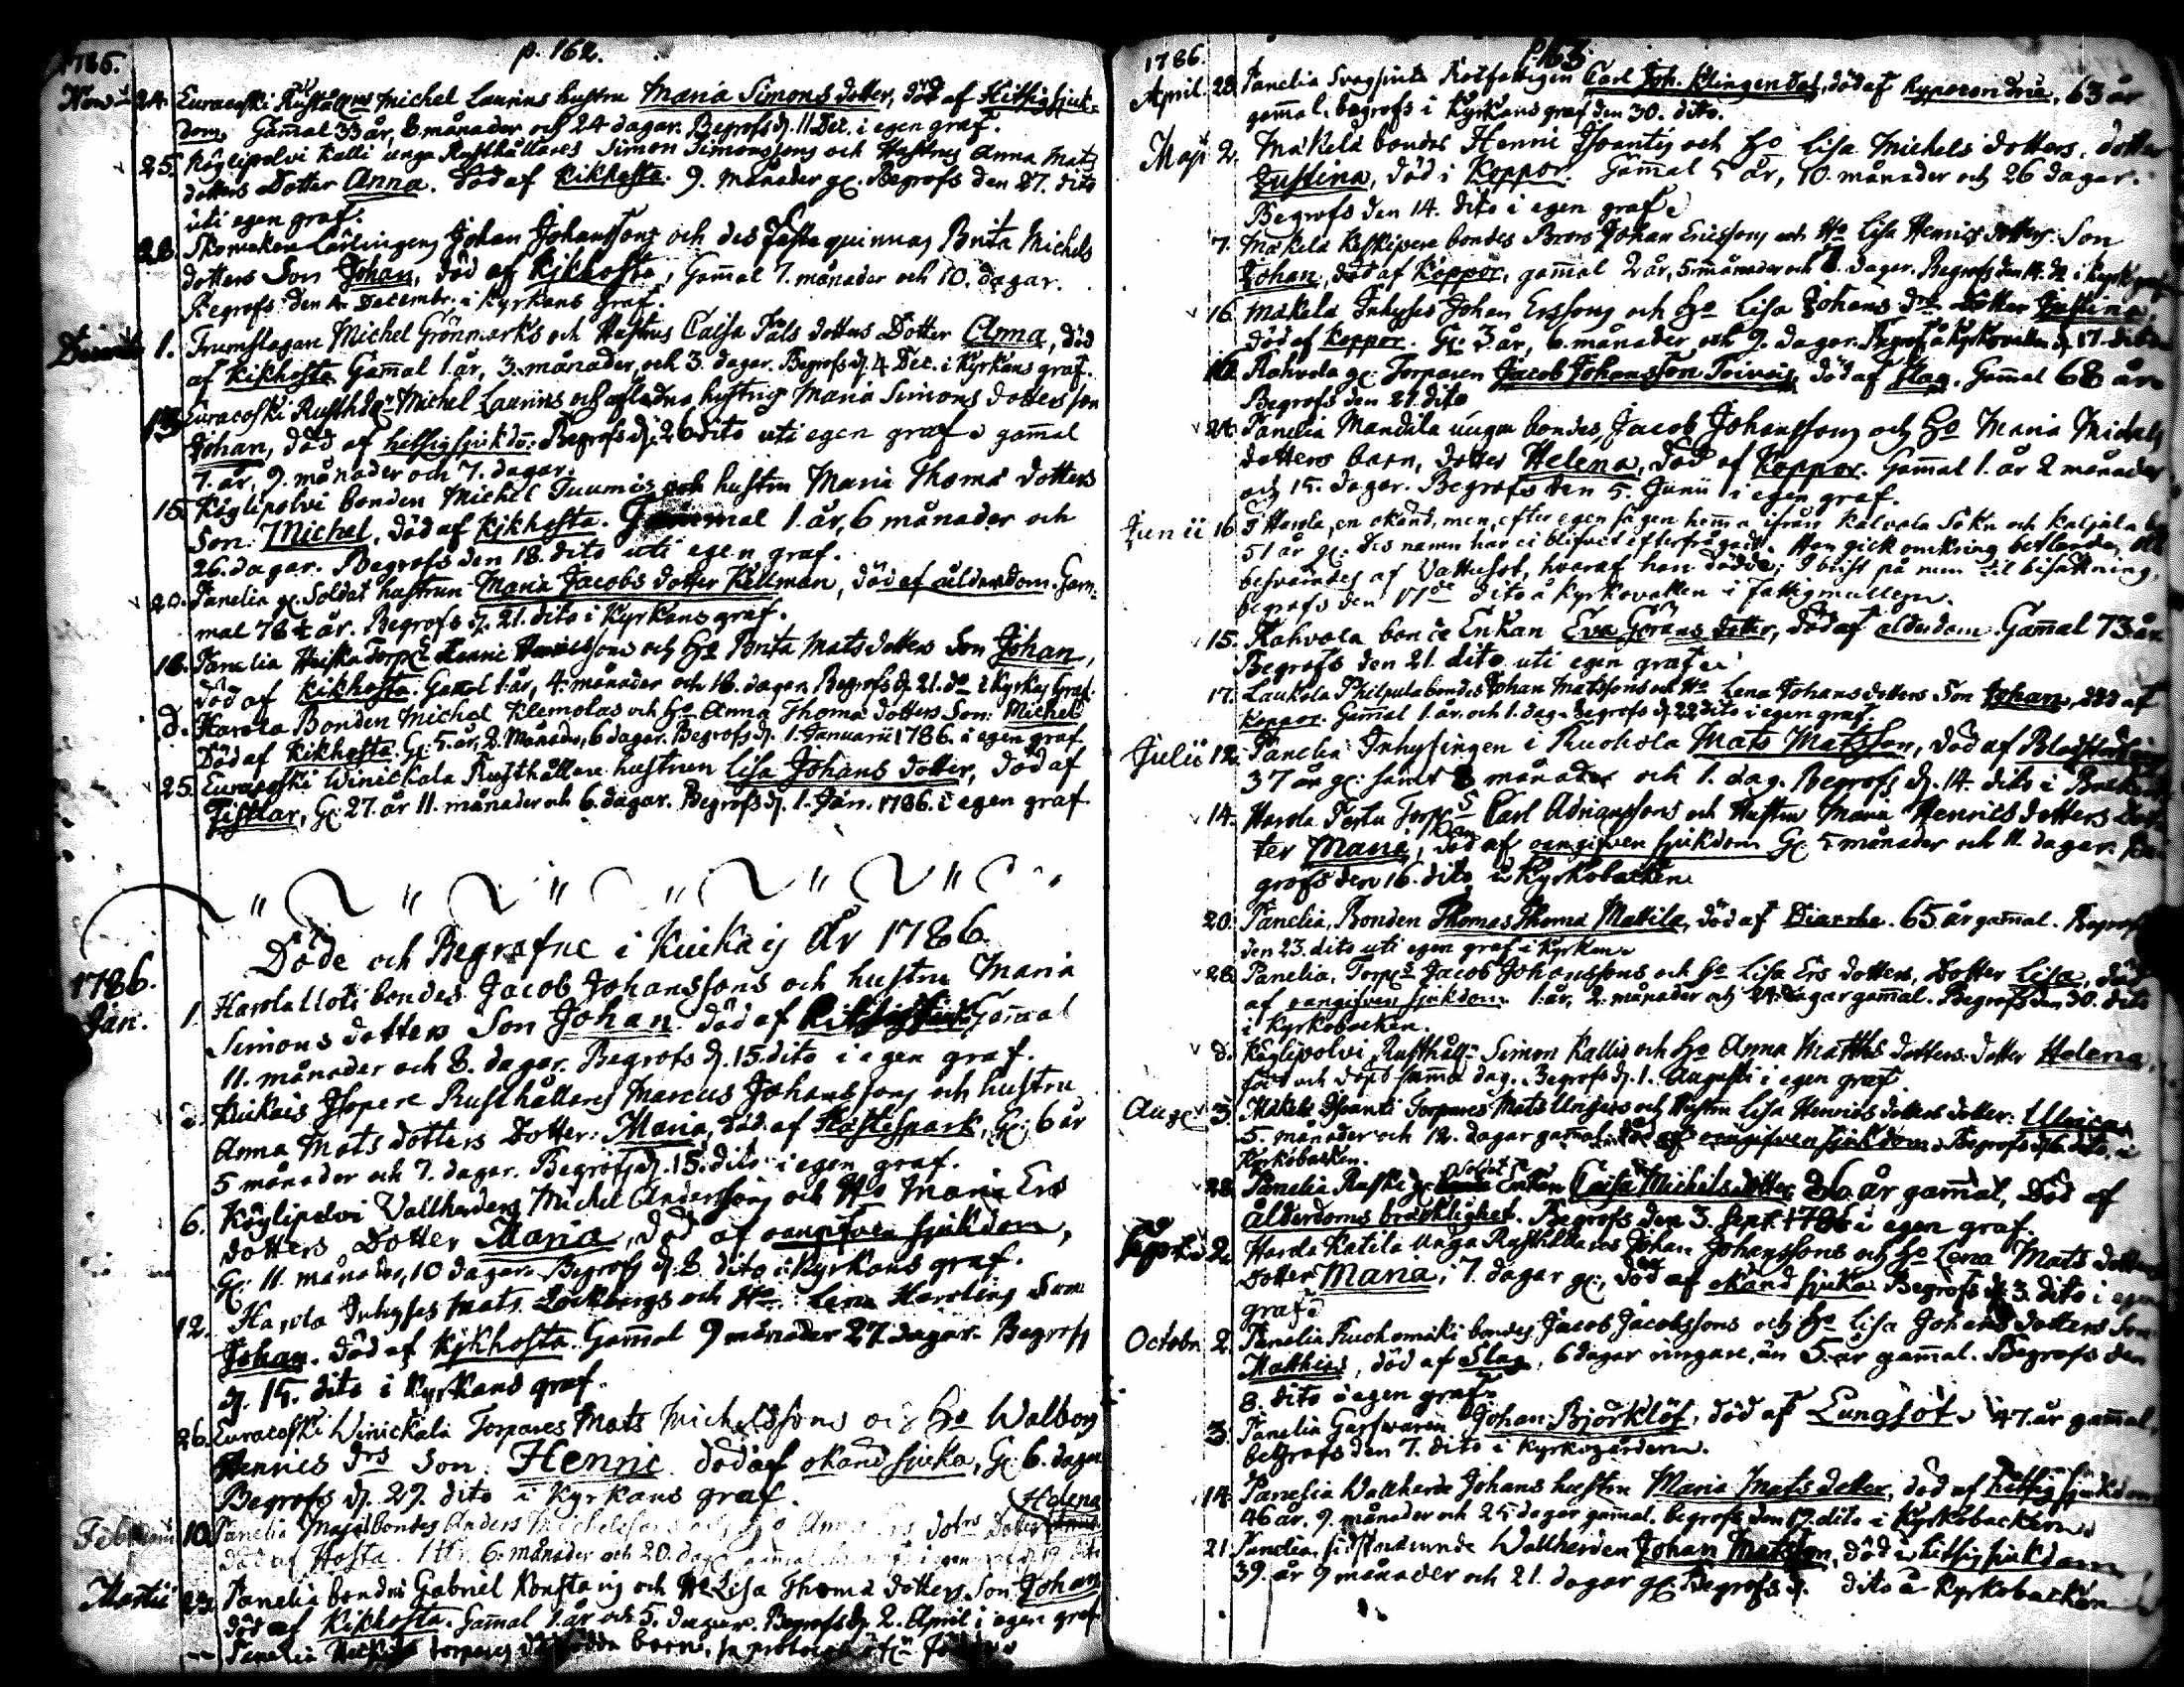 1785.
p. 162.
Novemb. 24. Euracoski Rusthållares Michel Laurins hustru Maria Simons dotter, död af Hitsig sjuk-
dom. Gam̄al 33 år, 8 månader och 24 dagar. Begrofs d. 11 Dec. i egen graf.
25. Köylipolvi Kalli unga Rusthållares Simon Simonssons och Hustrus Anna Mats
dotters Dotter Anna. död af kikhosta. 9. månader gl. Begrofs den 27. dito
uti egen graf.
28. Skomakare Lärlingens Johan Johanssons och des Fästequinnas Brita Michels
dotters Son Johan, död af kikhosta, Gam̄al 7. månader och 10. dagar.
Begrofs den 4. Decembr. i Kyrkans graf.
Decemb. 1. Trumslagaren Michel Grönmarks och Hustrus Caisa Påls dotters Dotter Anna, död
af kikhosta Gam̄al 1. år, 3. månader, och 3. dagar. Begrofs d. 4 Dec. i Kyrkans graf.
13. Euracoski Rusthålls Michel Laurins och afledna hustrus Maria Simons dotters son
Johan, död af hitsig sjukdō. Begrofs d. 26 dito uti egen graf gam̄al
7. år, 9. månader och 7. dagar.
15. Köylipolvi bonden Michel Tuumis och hustru Maria Thomæ dotters
Son: Michel, död af kikhosta. Gammal 1. år, 6 månader och
26. dagar. Begrofs den 18. dito uti egen graf.
20. Panelia gl. Soldat hustrun Maria Jacobs dotter Kellman, död af ålderdom. Gam-
mal 78 år. Begrofs d. 21. dito i Kyrkans graf.
18. Panelia Heiska Torp. Henric Henricssons och Ho Brita Mats dotters Son Johan,
död af kikhosta. Gam̄al 1. år, 4. månader och 16. dagar. Begrofs d. 21. do i Kyrkans Graf.
d. Harola Bonden Michel Klemolas och Ho Anna Thomæ dotters Son: Michel
Död af kikhosta. Gl. 5. år, 2. Månader, 6 dagar. Begrofs d. 1. Januarii 1786. i egen graf.
25. Euracoski Winickala Rusthållare hustrun Lisa Johans dotter, död af
Fistlar, Gl. 27. år 11. månader och 6. dagar. Begrofs d. 1. Jan. 1786. i egen graf.
Döde och Begrafne i Kiukais År 1786.
1786.
Jan. 1. Harola Uoti bondes Jacob Johanssons och hustru Maria
Simons dotters Son Johan. död af Hitsig sjukd. Gam̄al
11. månader och 8. dagar. Begrofs d. 15. dito i egen graf.
2. Kiukais Isopere Rusthållares Marcus Johanssons och hustru
Anna Mats dotters Dotter: Maria, död af Hästspark, Gl. 6 år
5 månader och 7. dagar. Begrofs d. 15. dito i egen graf.
6. Köylipolvi Vallherdens Michel Anderssons och Ho Maria Ers
dotters Dotter Maria, död af oangifven sjukdom,
Gl. 11 månader, 10 dagar. Begrofs d. 8. dito i Kyrkans graf.
12. Harola Inhyses Mats Löckbergs och Ho Lena Harolins Son
Johan. död af kikhosta. Gam̄al 9 månader 27. dagar. Begrofs
d. 15. dito i Kyrkans graf.
26. Euracoski Winickala Torpares Mats Michelssons och Ho Walborg
Henrics drs Son: Henric död af okänd sjuka, Gl. 6. dagar
Begrofs d. 29. dito i Kyrkans graf.
Helena
Februarii 10. Panelia bondes Anders Michelssons och Ho Anna Ers dotrs Dotter
död af Hosta. 1 år. 6. månader och 20. dagar
Martii 23. Panelia bondes Gabriel Konstans och Ho Lisa Thomæ dotters Son Johan
död af kikhosta. Gam̄al 1. år och 5. dagar. Begrofs d. 2. April i egen graf.
Panelia torpares barn,
1786.
p. 163.
April. 28. Panelia Svagsinte Rotfattigen Carl Joh. Klingendal, död af hypocondrie, 63 år
gam̄al, begrofs i Kyrkans graf den 30. dito.
Maji 2. Mäkelä bondes Henric Isoantis och Ho Lisa Michels dotters, dotter
Justina, död i Koppor. Gam̄al 5 år, 10. månader och 26 dagar.
Begrofs den 14. dito i egen graf.
7. Mäkelä bondes Brors Johan Ericssons och Ho Lisa Henrics dotters Son
Johan, död af Koppor, gam̄al 2 år, 5 månader och 8. dagar. Begrofs den 14. do i kyrk graf
16. Mäkelä Inhyses Johan Erssons och Ho Lisa Johans drs Dotter Justina,
död af koppor. Gl. 3. år, 6. månader, och 9. dagar. Begrofs å Kyrkobacken d. 17. dito
18. Rahvola gl. Torparen Jacob Johansson Toivois, död af slag. Gam̄al 68 år.
Begrofs den 21. dito
24. Panelia Mandila unga bondes, Jacob Johanssons och Ho Maria Michels
dotters barn, dotter Helena, död af Koppor. Gam̄al 1. år 2 månader
och 15. dagar. Begrofs den 5. Junii i egen graf.
Junii 16. I Harola, en okänd, men, efter egen sägen hem̄a ifrån Kalvola Sokn och Kaljala by
51 år gl. Des namn har ei blifvit efterfrågadt. Han gick omkring betlande, och
besvärades af Vattusot, hvaraf han dödde; I brist på rum til bisättning,
begrofs den 17de dito å Kyrkovallen i fattigmullen.
15. Rahvola bonde Enkan Eva Görans dotter, död af ålderdom. Gam̄al 73. år
Begrofs den 21. dito uti egen graf.
17. Laukola Philpula bondes Johan Matssons och Ho Lena Johans dotters Son Johan, död af
Koppor. Gam̄al 1. år. och 1. dag. Begrofs d. 22 dito i egen graf.
Julii 12. Panelia Inhysingen i Ruohola Mats Matsson, död af
37 år gl. samt 8 månader och 1. dag. Begrofs d. 14. dito i
14. Harola Pertu Torps Carl Adrianssons och Hustru Maria Henrics dotters Dot-
ter Maria, död af oangifven sjukdom Gl. 5 månader och 11. dagar. Be-
grofs den 16. dito å Kyrkobacken
20. Panelia, Bonden Thomas Thomæ Mattila, död af Diarrhe. 65 år gam̄al. Begrofs
den 23. dito uti egen graf i Kyrkan.
28. Panelia, Torps Jacob Johanssons och Ho Lisa Ers dotters, Dotter Lisa, död
af oangifven sjukdom. 1. år, 2. månader och 24. dagar gam̄al. Begrofs den 30. dito
i Kyrkobacken.
d. Köylipolvi Rusthålls Simon Kallis och Ho Anna Matths dotters dotter Helena,
föd och död sam̄a dag. Begrofs d. 1. Augusti i egen graf
Aug. 3. Mäkelä Isoanti Torpares Mats Ungers och Hustru Lisa Henrics dotters dotter: Ulrica
5. månader och 12. dagar gam̄al. död af oangifven sjukdom. Begrofs d. 6. dito i
Kyrkobacken.
28. Panelia Raski gl. Soldat Enkan Caisa Michels dotter 86 år gam̄al, Död af
ålderdoms bräcklighet. Begrofs den 3. Sept. 1786 i egen graf.
Septemb. 2. Harola Katila Unga Rusthållares Johan Johanssons och Ho Lena Mats dotters
dotter Maria, 7. dagar gl. död af okänd sjuka Begrofs d. 3. dito i egen
graf.
Octobr. 2. Panelia Ruohomäki bondes Jacob Jacobssons och Ho Lisa Johans dotters Son
Matthias, död af Slag, 6 dagar ringare, än 5. år gam̄al. Begrofs den
8. dito i egen graf.
3. Panelia Garfvaren Johan Björklöf, död af Lungsot. 47. år gam̄al,
begrofs den 7. dito i Kyrkogården.
14. Panelia Wallherde Johans hustru Maria Mats dotter, död af hitsig sjukdom
46 år. 9. månader och 25 dagar gam̄al. begrofs den 17. dito i Kyrkobacken.
21. Panelia, sistnämnde Wallherden Johan Matsson, död i hitsig sjukdom,
39. år 9 månader och 21. dagar gl. Begrofs d. dito å Kyrkobacken